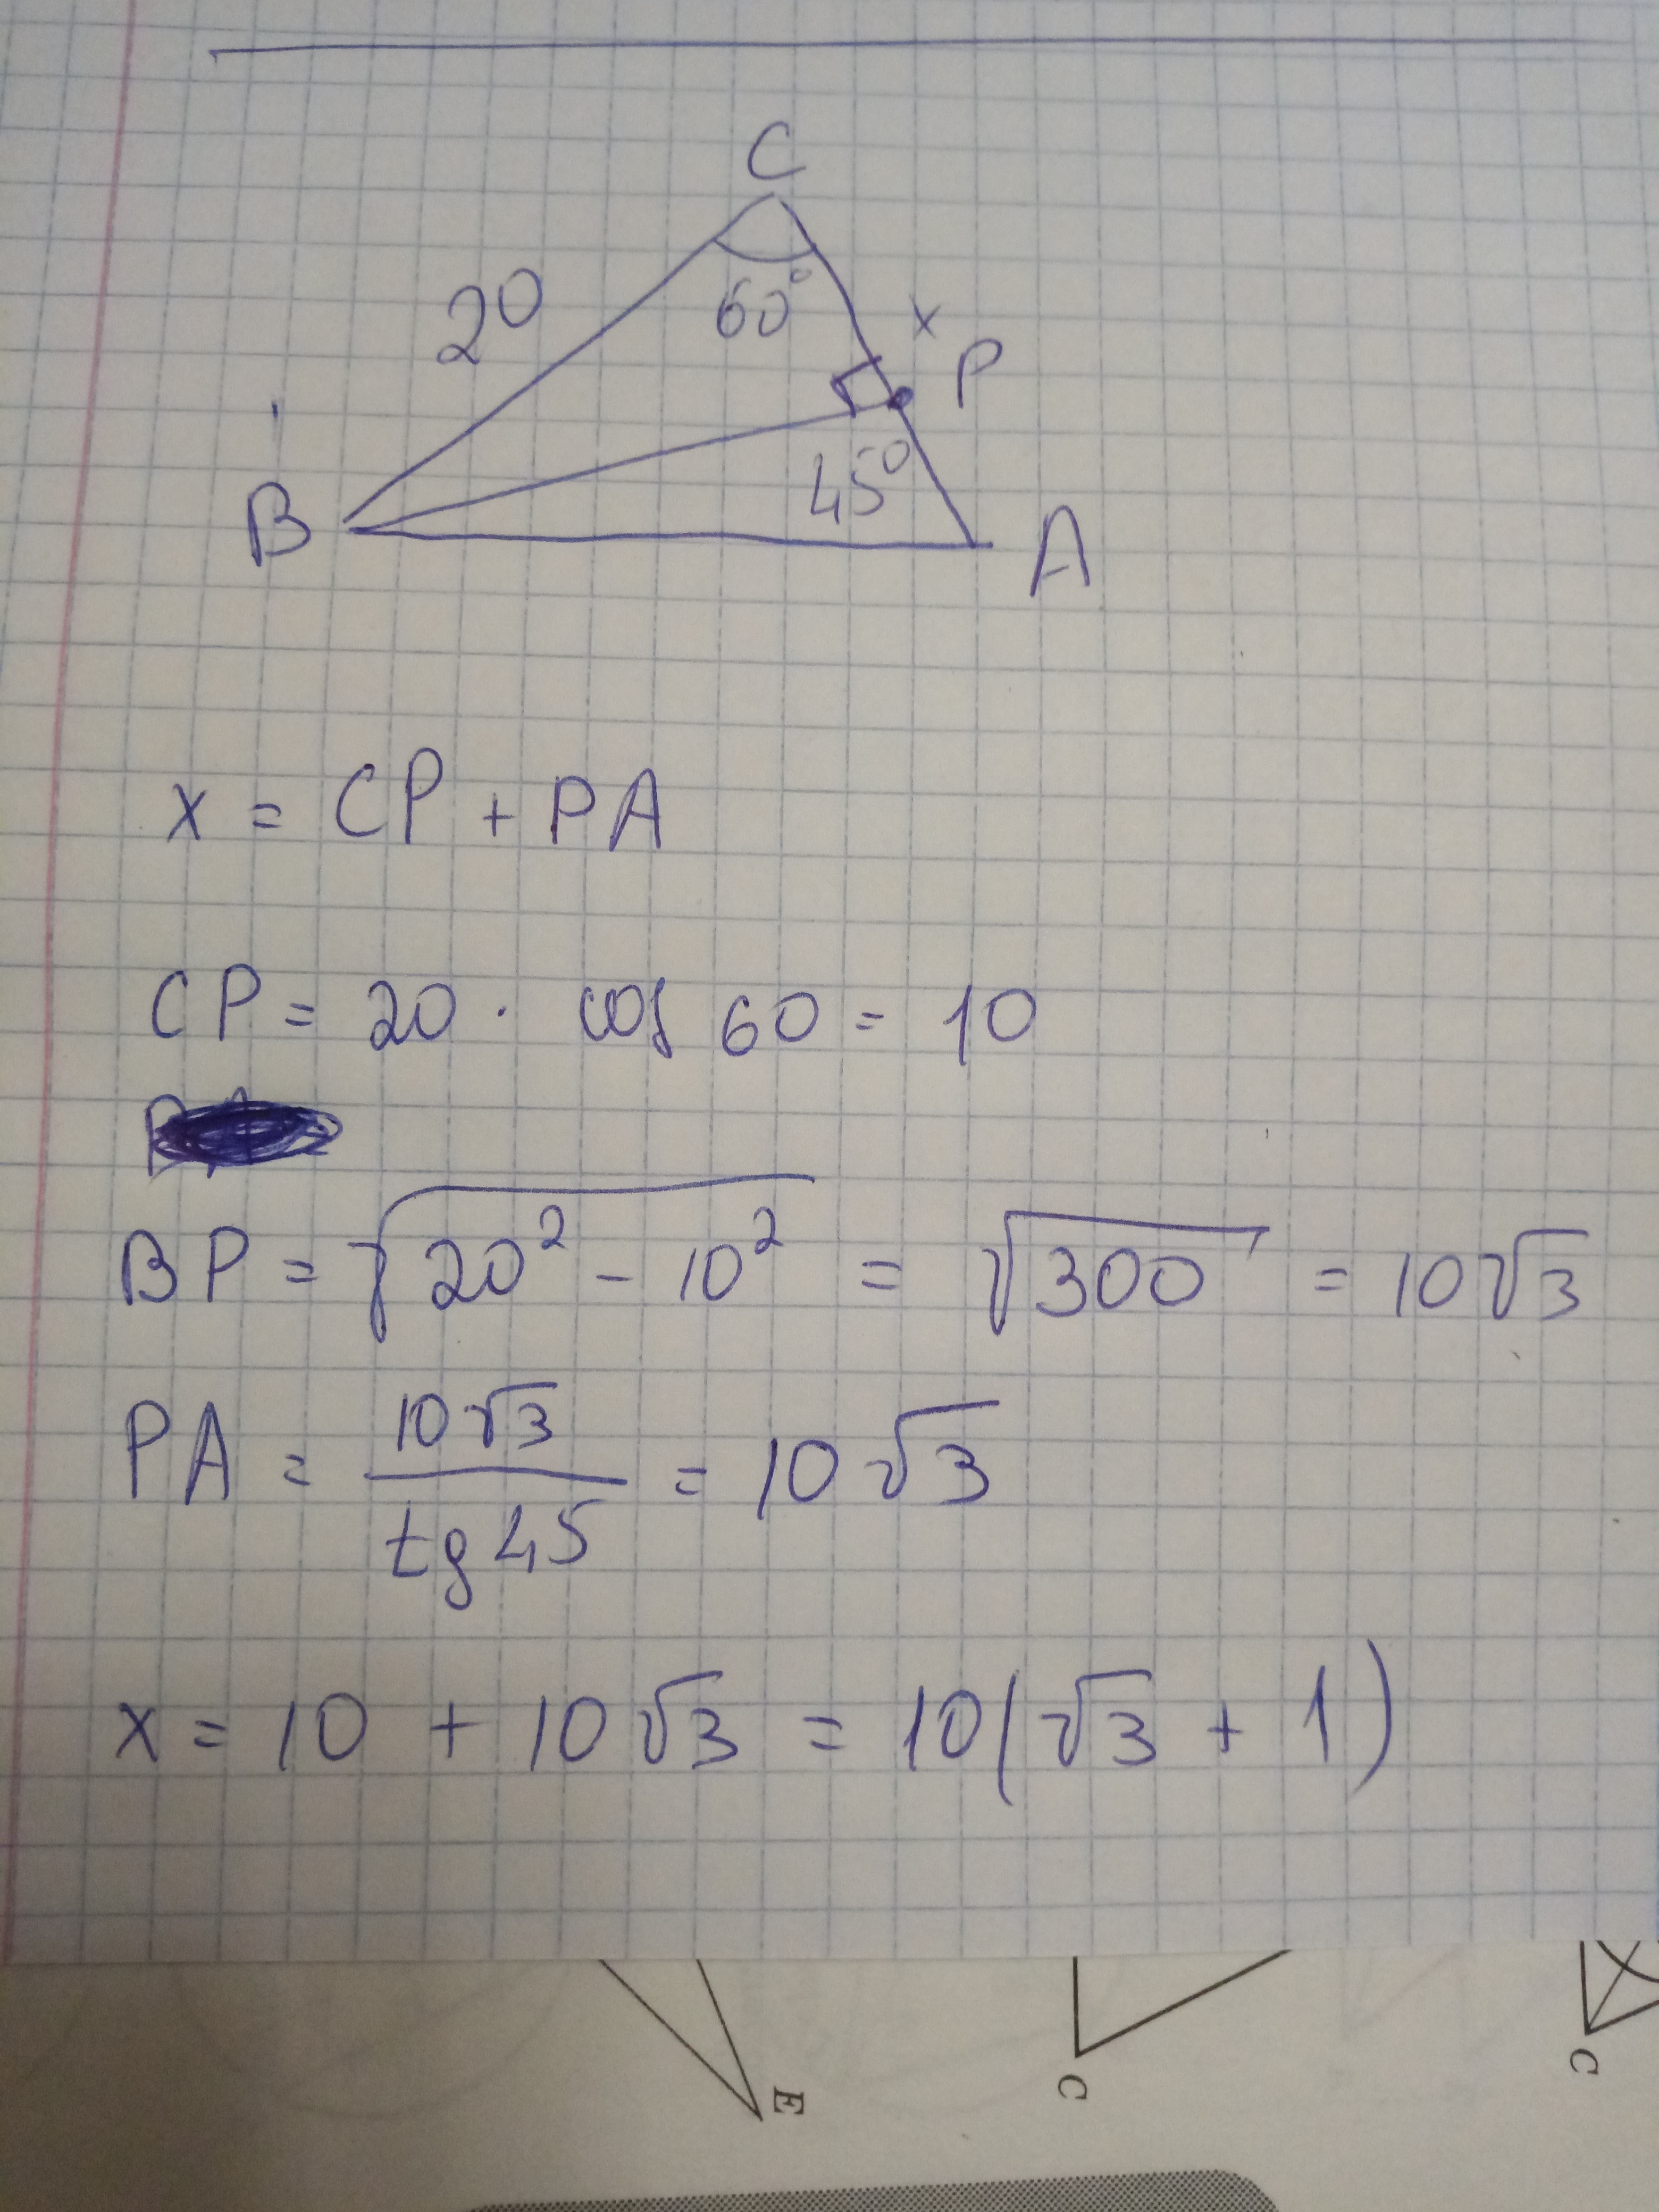 C
20
60°
x
P
45°
B
A
x = CP + PA
CP = 20 · cos 60 = 10
BP = √(20² - 10²) = √300 = 10√3
PA = 10√3 / tg 45 = 10√3
x = 10 + 10√3 = 10(√3 + 1)
E
C
C